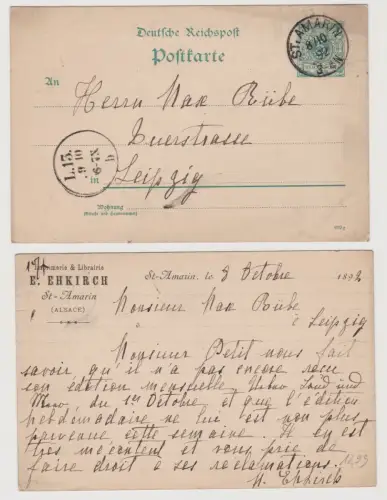 Deutsche Reichspost
Postkarte
ST. AMARIN
8/10
92
3-4N
An
Herrn Max Rübe
Querstrasse
L. 13.
9 10
6-7N
b
in
Leipzig
Wohnung
(Straße und Hausnummer)
Imprimerie & Librairie
E. EHKIRCH
St-Amarin
(ALSACE)
St-Amarin, le 8 Octobre 1892
Monsieur Max Rübe
à Leipzig
Monsieur Petit nous fait
savoir qu'il n'a pas encore reçu
son édition mensuelle Ueber Land und
Meer, du 1er Octobre et que l'édition
hebdomadaire ne lui est non plus
parvenue cette semaine. Il en est
très mécontent et vous prie de
faire droit à ses réclamations.
E. Ehkirch